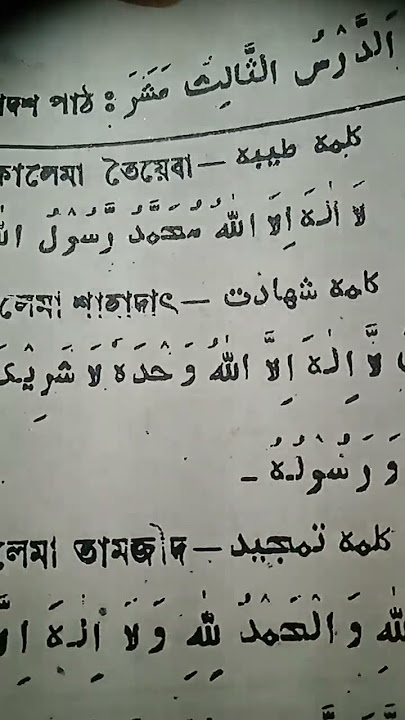 পাঠ : اَلدَّرْسُ الثَّالِثَ عَشَرَ
কালেমা তৈয়েবা — کلمہ طیبہ
لَا اِلٰهَ اِلَّا اللهُ مُحَمَّدٌ رَّسُوْلُ
লেমা শাহাদাৎ — کلمہ شهادت
لَّا اِلٰهَ اِلَّا اللهُ وَحْدَهٗ لَا شَرِيْكَ
وَ رَسُوْلُهٗ ـ
লেমা তামজীদ — کلمہ تمجید
وَ الْحَمْدُ لِلّٰهِ وَلَا اِلٰهَ